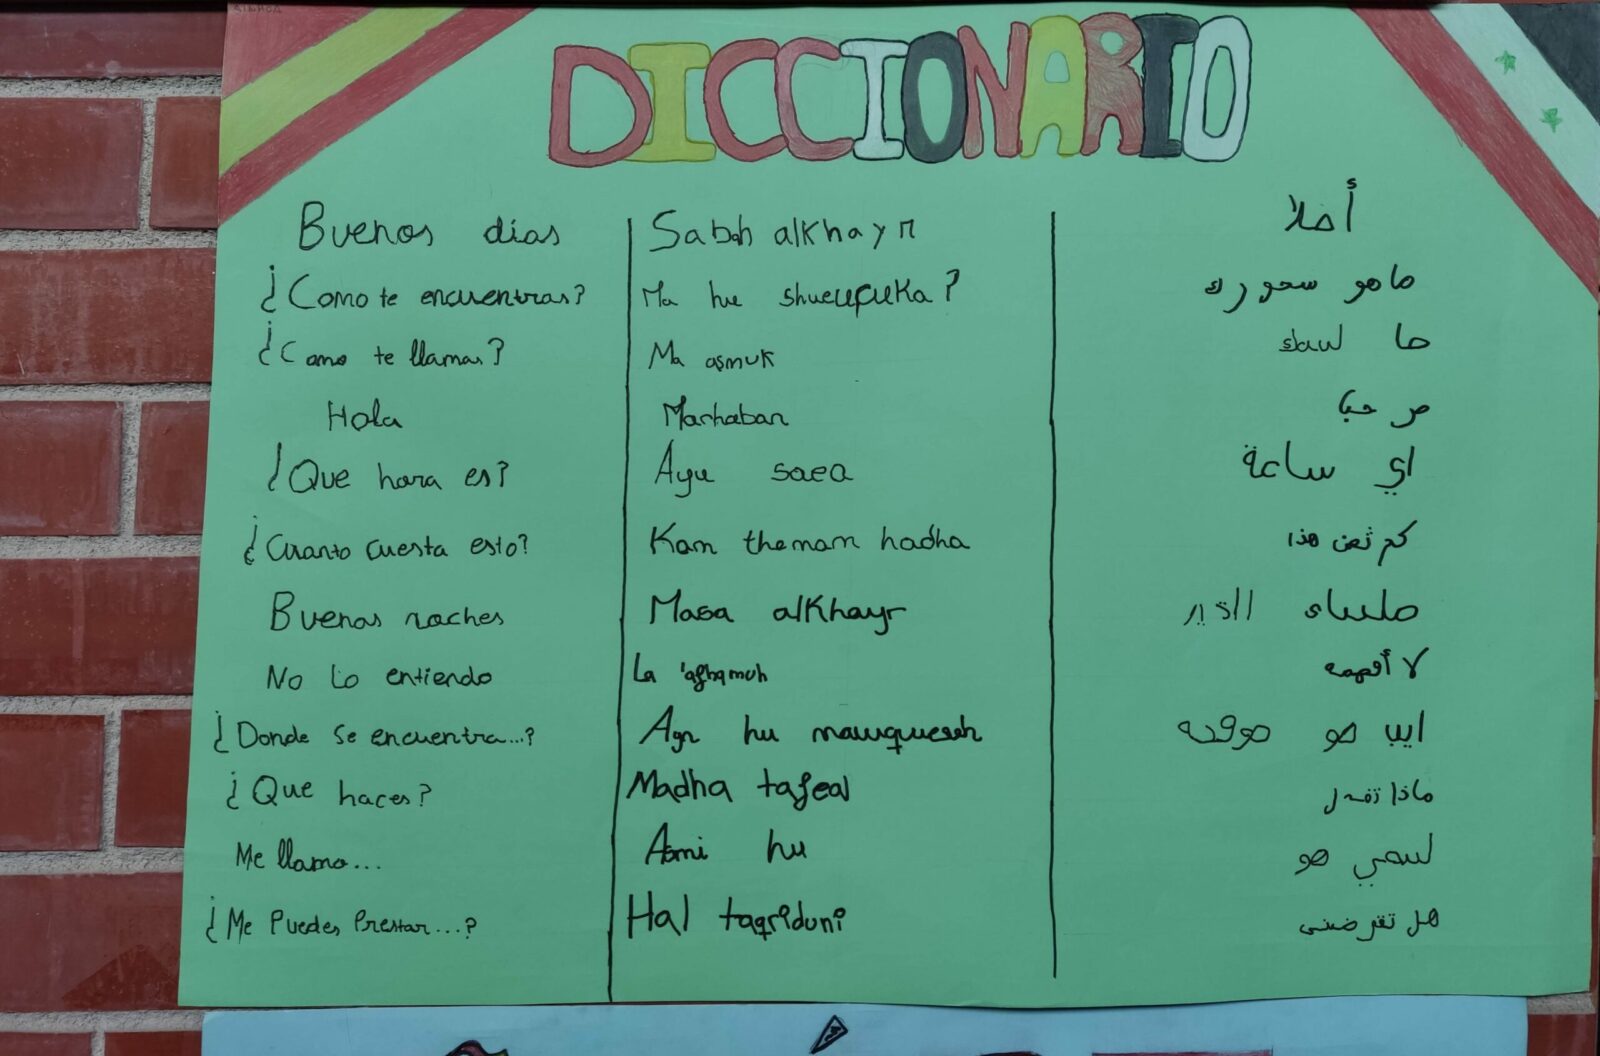 DICCIONARIO
Buenos días Sabah alkhayr أهلا
¿Como te encuentras? Ma hu shueuruka? ماهو سعورك
¿Como te llamas? Ma asmuk ما اسمك
Hola Marhaban مرحبا
¿Que hora es? Ayu saea اي ساعة
¿Cuanto cuesta esto? Kam theman hadha كم ثمن هذا
Buenas noches Masa alkhayr الخير
No Lo entiendo La 'afhamuh لا أفهمه
¿Donde Se encuentra...? Ayn hu mawqueeh اين هو موقعه
¿Que haces? Madha tafeal ماذا تفعل
Me llamo... Asmi hu اسمي هو
¿Me Puedes Prestar...? Hal taqriduni هل تقرضني